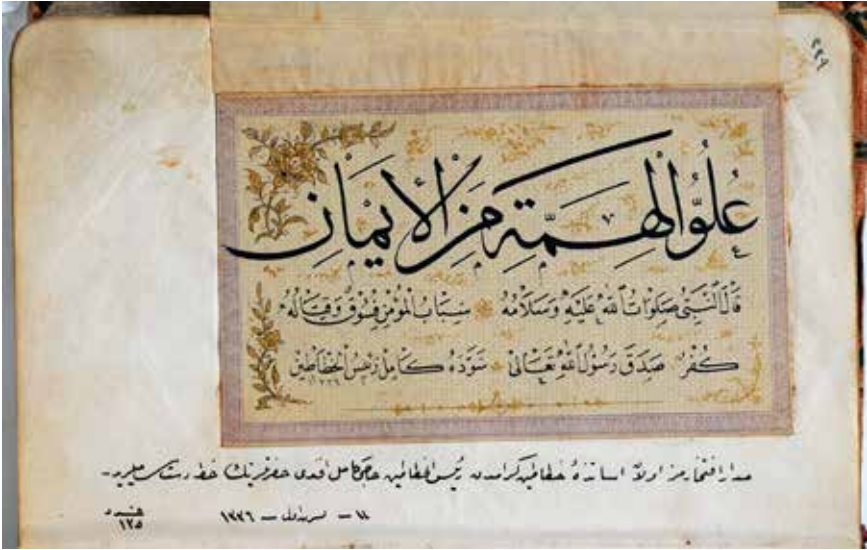 ٢٢٩
عُلُوُّ الْهِمَّةِ مِنَ الْإِيمَانِ
قَالَ النَّبِيُّ صَلَوَاتُ اللهِ عَلَيْهِ وَسَلَامُهُ سِبَابُ الْمُؤْمِنِ فُسُوقٌ وَقِتَالُهُ
كُفْرٌ صَدَقَ رَسُولُ اللهِ تَعَالَى سَوَّدَهُ كَامِل رَئِيسُ الْخَطَّاطِينَ
مدار افتخارمز اولان اساتذۀ خطاطین کرامدن رئیس الخطاطین حاجی کامل افندی حضرتلرینك خط
١٣٣٦
١٢٥